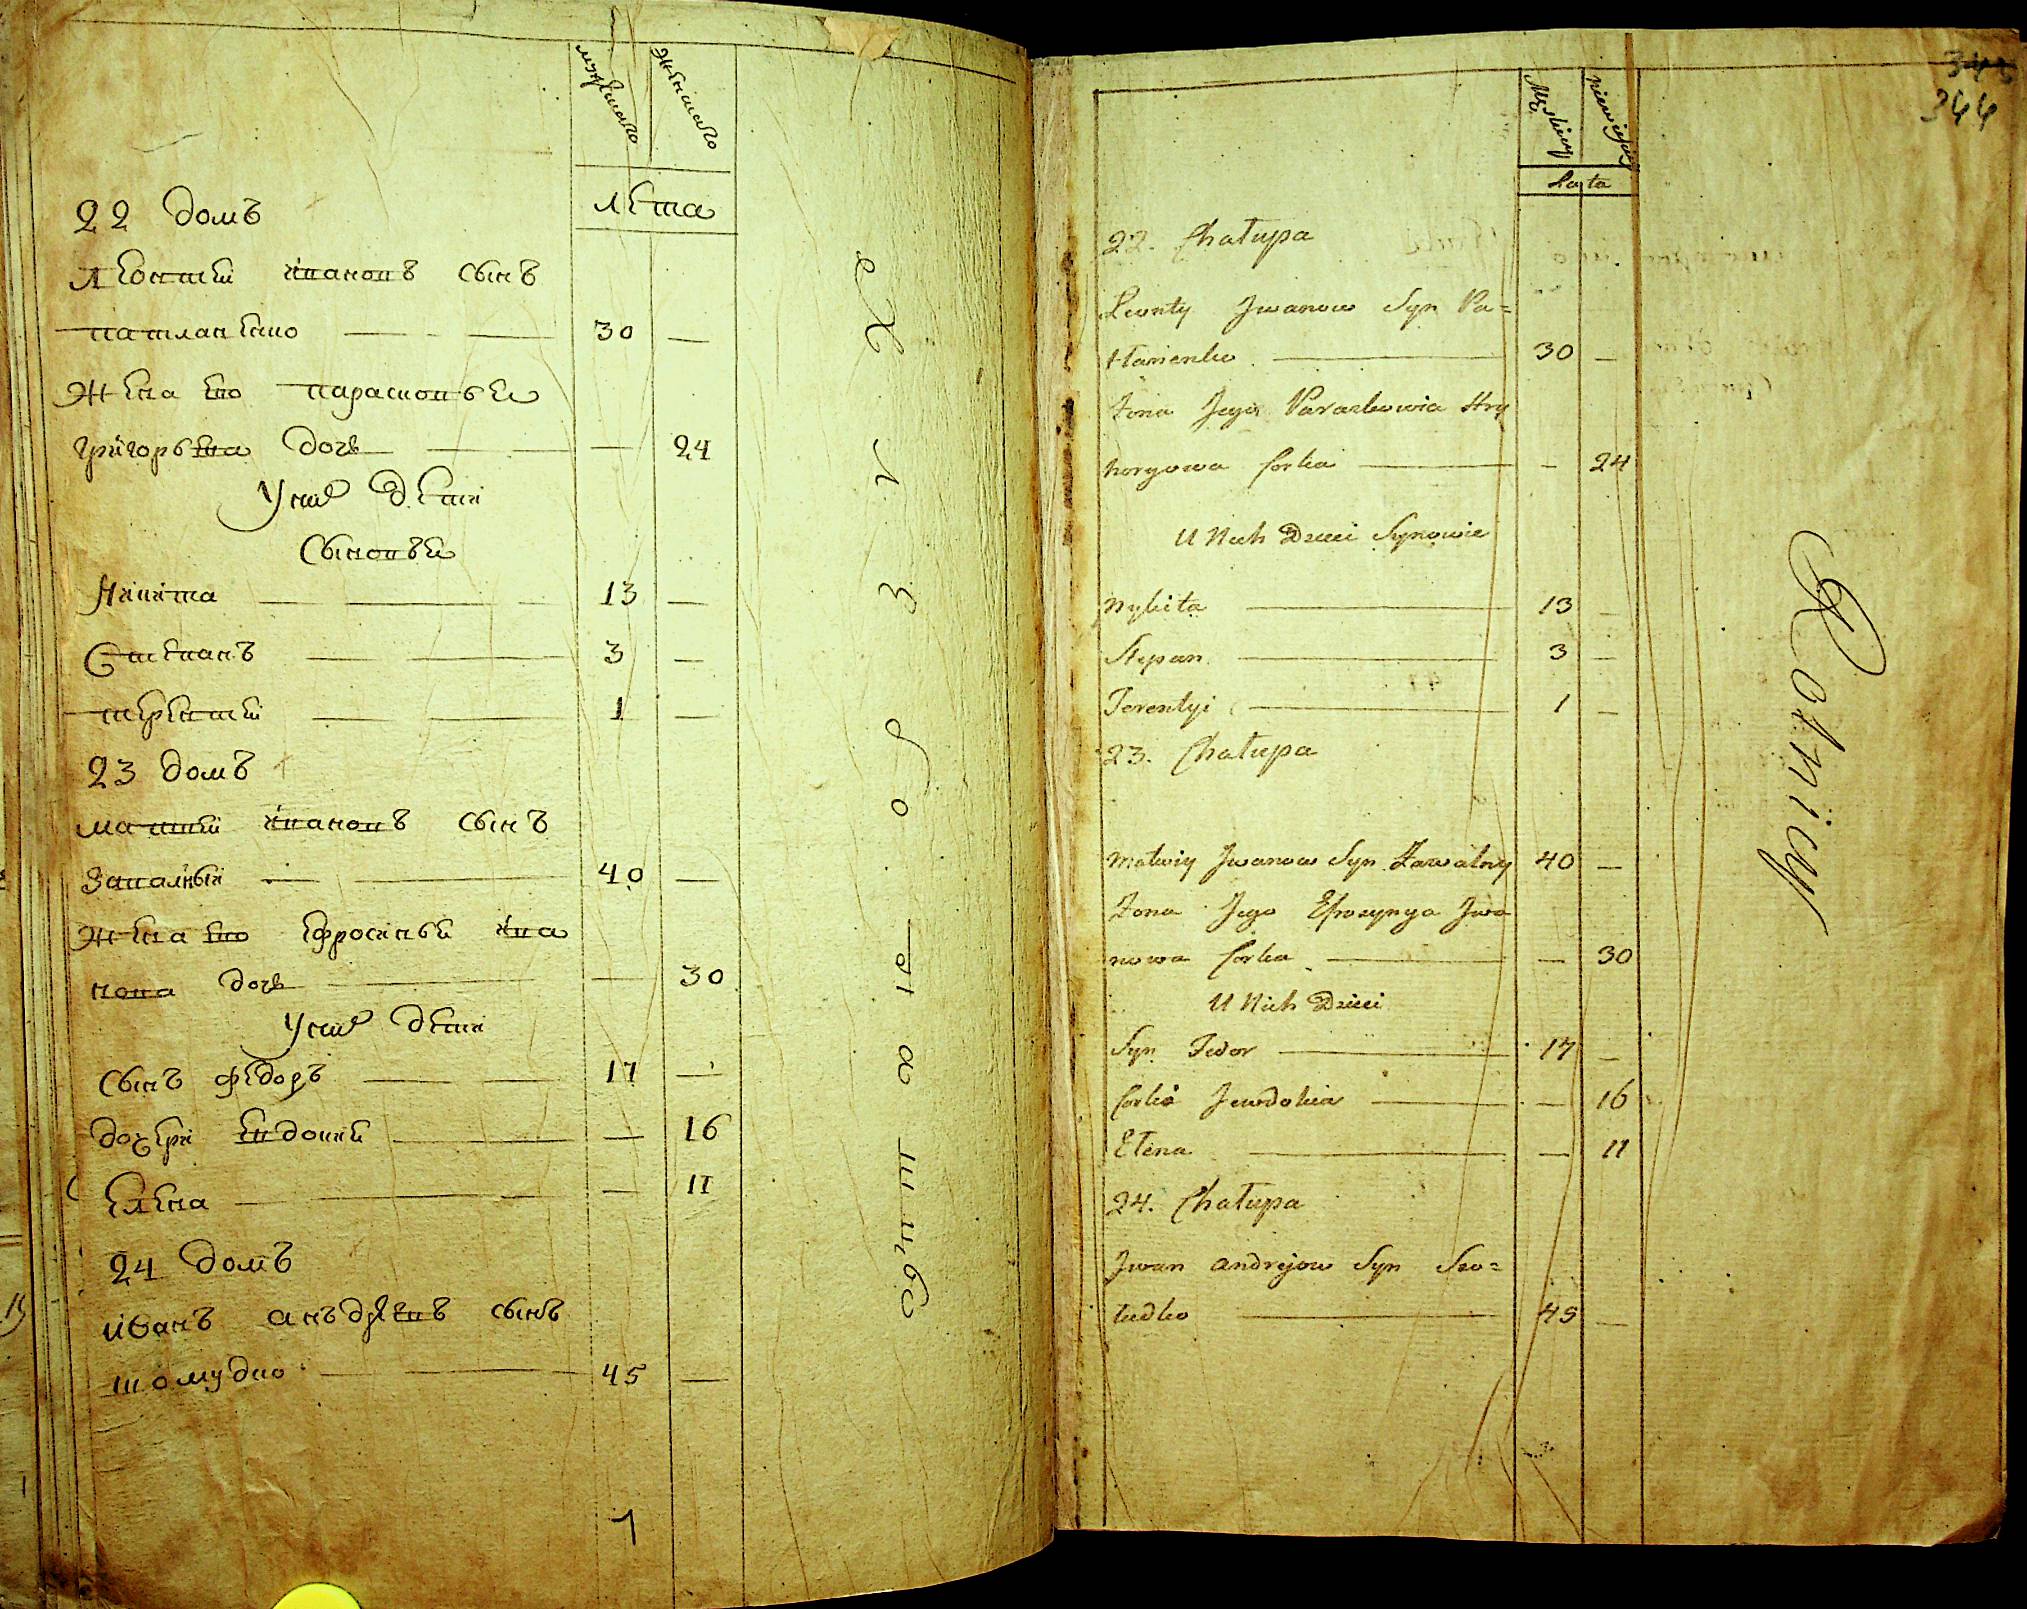 мужеска женска
лета
22 домъ
Леонтий ивановъ сынъ
патланенко 30 —
жена его парасковъея
григорьева дочь — 24
У них дети
Сыновъя
Никита 13 —
Степанъ 3 —
терентий 1 —
23 домъ
матвий ивановъ сынъ
Завалный 40 —
жена его ефросинья ива
нова дочь — 30
У них дети
Сынъ федоръ 17 —
дочери евдокия — 16
Елена — 11
24 домъ
иванъ анъдреевъ сынъ
45 —
344
Męskiey niewieściey
Lata
22. Chałupa
Leonty Jwanow Syn Pa=
tłanienko 30 —
Żona Jego Paraskowia Hry
horyowa Corka — 24
U Nich Dzieci Synowie
Mykita 13 —
Stepan 3 —
Terentyi 1 —
23. Chałupa
Matwiy Jwanow Syn Zawalny 40 —
Żona Jego Efrozynya Jwa
nowa Corka — 30
U Nich Dzieci
Syn Fedor 17 —
Corka Jewdokia — 16
Elena — 11
24. Chałupa
Jwan Andrejow Syn
45 —
Rolnicy